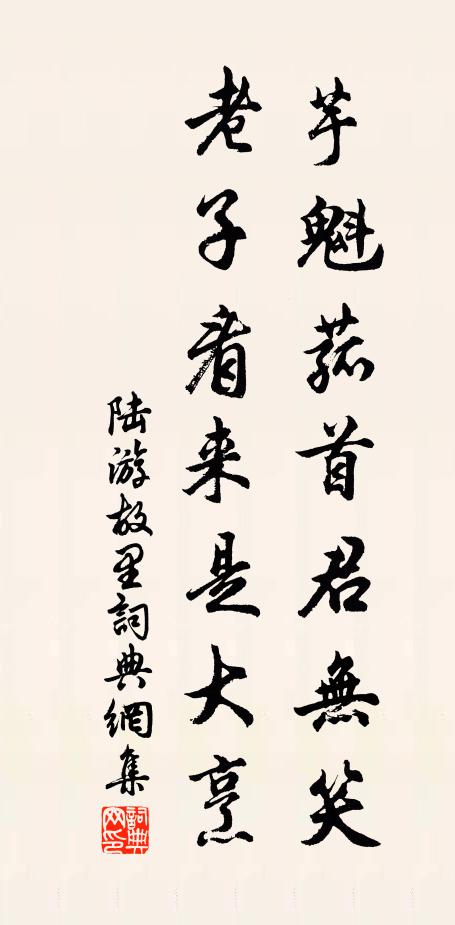 芋魁菰首君無笑
老子看来是大烹
陆游故里詞典網集
詞典网印